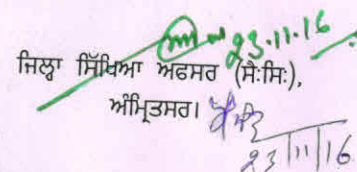 23.11.16
ਜਿਲ੍ਹਾ ਸਿੱਖਿਆ ਅਫਸਰ (ਸੈ:ਸਿ:),
ਅੰਮ੍ਰਿਤਸਰ।
23/11/16